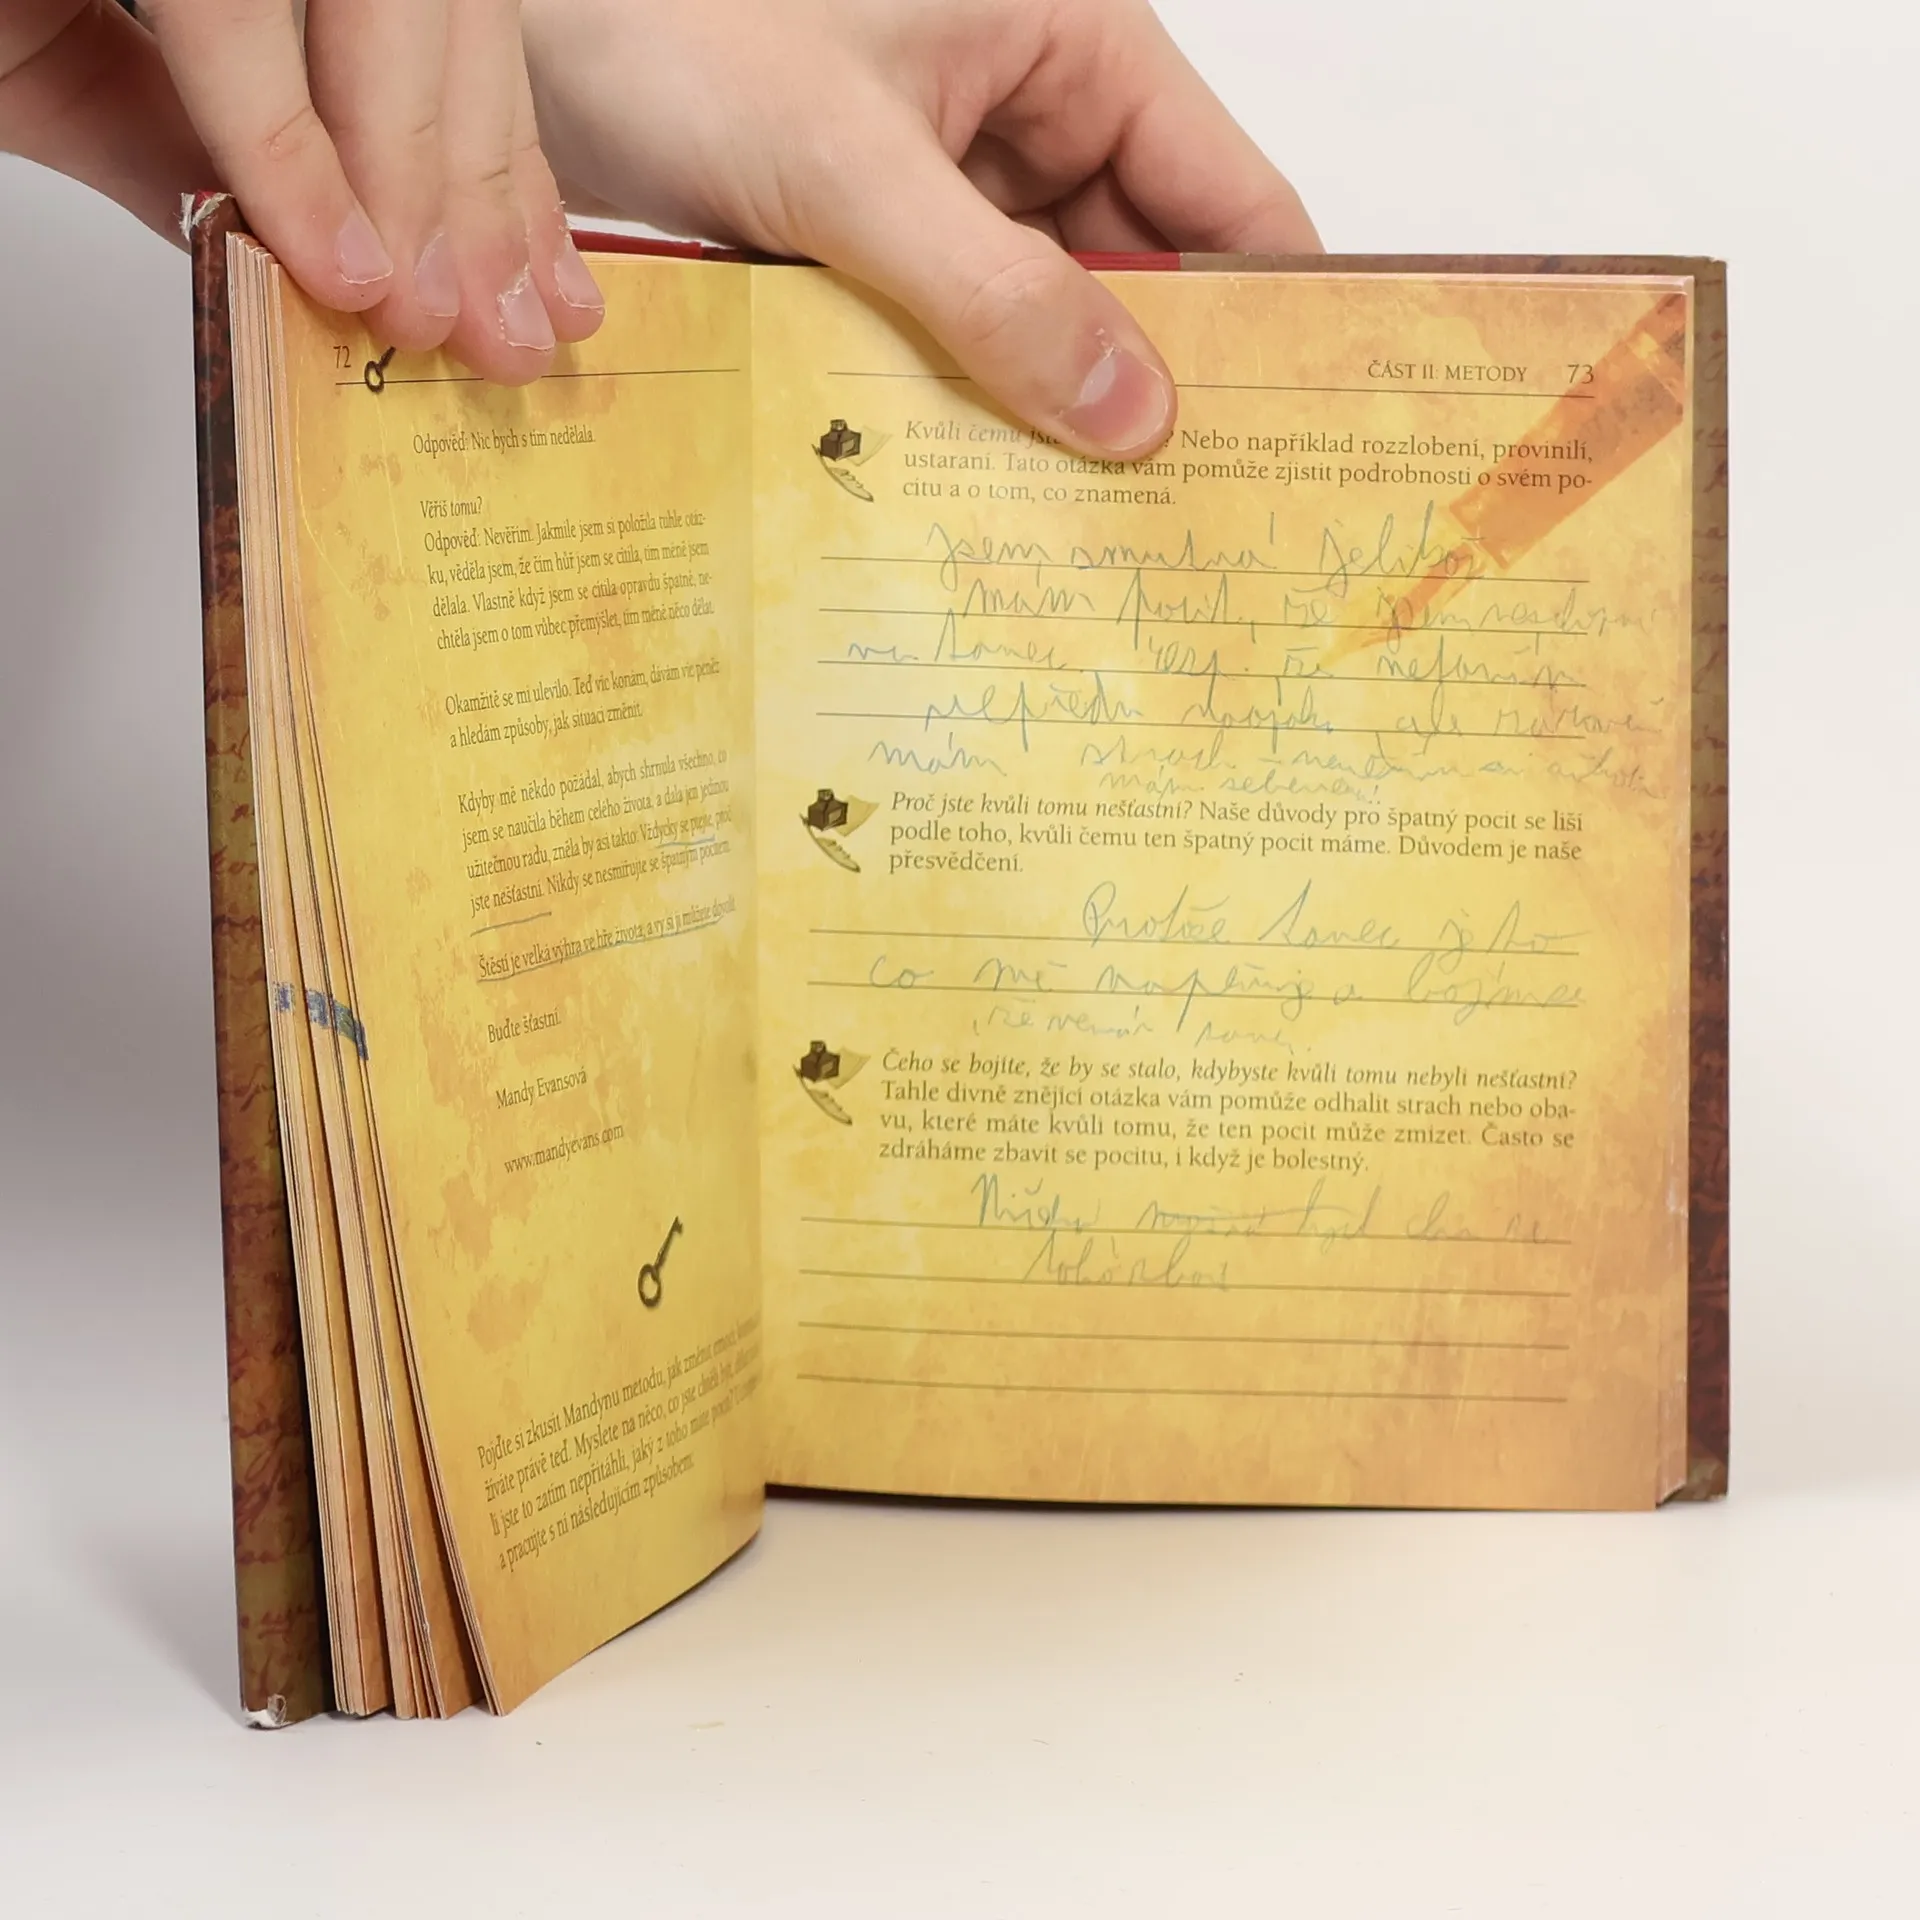 72
Odpověď: Nic bych s tím nedělala.
Věříš tomu?
Odpověď: Nevěřím. Jakmile jsem si položila tuhle otáz-
ku, věděla jsem, že čím hůř jsem se cítila, tím méně jsem
dělala. Vlastně když jsem se cítila opravdu špatně, ne-
chtěla jsem o tom vůbec přemýšlet, tím méně něco dělat.
Okamžitě se mi ulevilo. Teď víc konám, dávám víc peněz
a hledám způsoby, jak situaci změnit.
Kdyby mě někdo požádal, abych shrnula všechno, co
jsem se naučila během celého života, a dala jen jedinou
užitečnou radu, zněla by asi takto: Vždycky se ptejte, proč
jste nešťastní. Nikdy se nesmiřujte se špatným pocitem.
Štěstí je velká výhra ve hře života, a vy si ji můžete dovolit.
Buďte šťastní.
Mandy Evansová
www.mandyevans.com
Pojďte si zkusit Mandynu metodu, jak změnit emoci,
žíváte právě teď. Myslete na něco, co jste chtěli být,
li jste to zatím nepřitáhli, jaký z toho máte pocit?
a pracujte s ní následujícím způsobem:
ČÁST II: METODY 73
Kvůli čemu ? Nebo například rozzlobení, provinilí,
ustaraní. Tato otázka vám pomůže zjistit podrobnosti o svém po-
citu a o tom, co znamená.
jsem smutná jelikož
mám pocit, že jsem neschopná
na tanec. resp. že
ale
mám strach
mám
Proč jste kvůli tomu nešťastní? Naše důvody pro špatný pocit se liší
podle toho, kvůli čemu ten špatný pocit máme. Důvodem je naše
přesvědčení.
Protože tanec je to
co mě naplňuje a bojím se
, že nemám
Čeho se bojíte, že by se stalo, kdybyste kvůli tomu nebyli nešťastní?
Tahle divně znějící otázka vám pomůže odhalit strach nebo oba-
vu, které máte kvůli tomu, že ten pocit může zmizet. Často se
zdráháme zbavit se pocitu, i když je bolestný.
chci se
toho zbavit